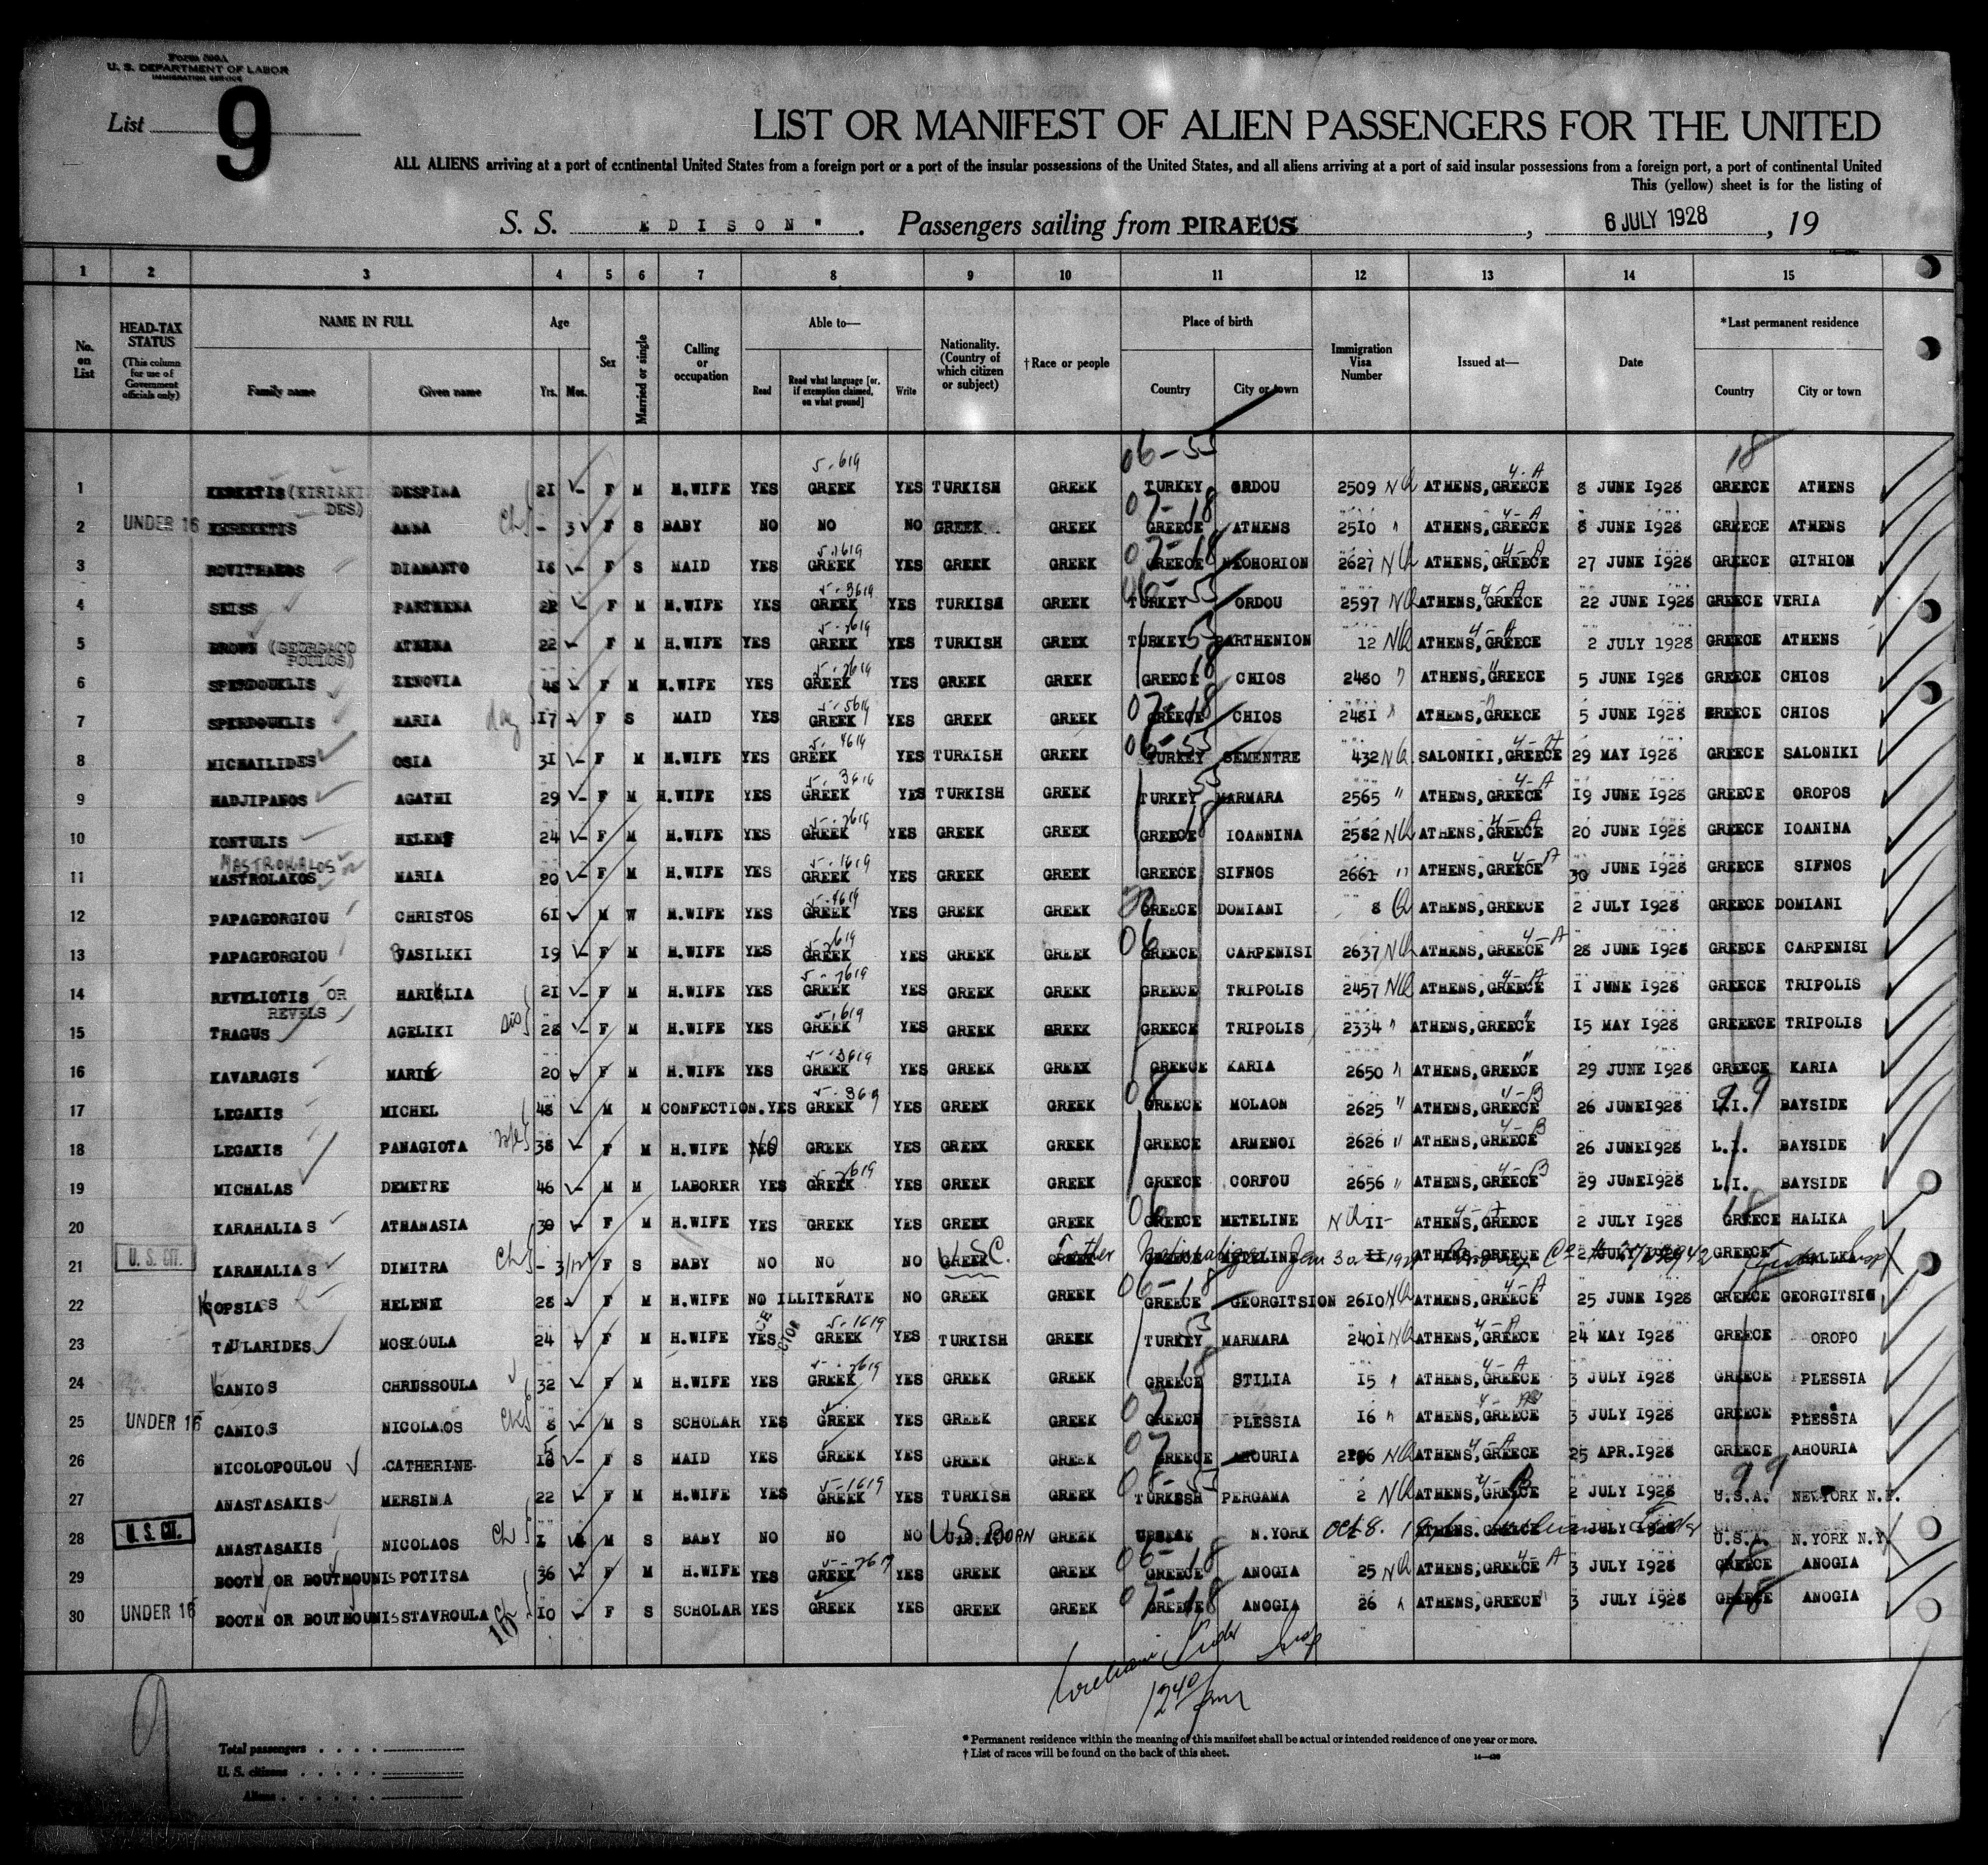 Form 500A
U. S. DEPARTMENT OF LABOR
IMMIGRATION SERVICE
List 9
LIST OR MANIFEST OF ALIEN PASSENGERS FOR THE UNITED
ALL ALIENS arriving at a port of continental United States from a foreign port or a port of the insular possessions of the United States, and all aliens arriving at a port of said insular possessions from a foreign port, a port of continental United
This (yellow) sheet is for the listing of
S. S. EDISON" . Passengers sailing from PIRAEUS , 6 JULY 1928 , 19
1 2 3 4 5 6 7 8 9 10 11 12 13 14 15
No. on List
HEAD-TAX STATUS (This column for use of Government officials only)
NAME IN FULL Family name Given name
Age Yrs. Mos.
Sex
Married or single
Calling or occupation
Able to— Read Read what language [or, if exemption claimed, on what ground] Write
Nationality. (Country of which citizen or subject)
†Race or people
Place of birth Country City or town
Immigration Visa Number
Issued at—
Date
*Last permanent residence Country City or town
06-55 18
1 KEREKETIS (KIRIAKIDES) DESPINA 21 F M H.WIFE YES GREEK YES TURKISH GREEK TURKEY ORDOU 2509 NQ ATHENS, GREECE 8 JUNE 1928 GREECE ATHENS
2 UNDER 16 KEREKETIS ANNA Ch - 3 F S BABY NO NO NO GREEK GREEK GREECE ATHENS 2510 " ATHENS, GREECE 8 JUNE 1928 GREECE ATHENS
3 ROVITHAKOS DIAMANTO 18 F S MAID YES GREEK YES GREEK GREEK GREECE NEOHORION 2627 NQ ATHENS, GREECE 27 JUNE 1928 GREECE GITHION
4 SEISS PARTHENA 22 F M H.WIFE YES GREEK YES TURKISH GREEK TURKEY ORDOU 2597 NQ ATHENS, GREECE 22 JUNE 1928 GREECE VERIA
5 BROWN (GEORGACOPOULOS) ATHENA 22 F M H.WIFE YES GREEK YES TURKISH GREEK TURKEY PARTHENION 12 NQ ATHENS, GREECE 2 JULY 1928 GREECE ATHENS
6 SPERDOUKLIS ZENOVIA 48 F M H.WIFE YES GREEK YES GREEK GREEK GREECE CHIOS 2480 " ATHENS, GREECE 5 JUNE 1928 GREECE CHIOS
7 SPERDOUKLIS MARIA 17 F S MAID YES GREEK YES GREEK GREEK GREECE CHIOS 2481 " ATHENS, GREECE 5 JUNE 1928 GREECE CHIOS
8 MICHAILIDES OSIA 31 F M H.WIFE YES GREEK YES TURKISH GREEK TURKEY SEMENTRE 432 NQ SALONIKI, GREECE 29 MAY 1928 GREECE SALONIKI
9 HADJIPANOS AGATHI 29 F M H.WIFE YES GREEK YES TURKISH GREEK TURKEY MARMARA 2565 " ATHENS, GREECE 19 JUNE 1928 GREECE OROPOS
10 KONTULIS HELENE 24 F M H.WIFE YES GREEK YES GREEK GREEK GREECE IOANNINA 2582 NQ ATHENS, GREECE 20 JUNE 1928 GREECE IOANINA
MASTROKALOS
11 MASTROLAKOS MARIA 20 F M H.WIFE YES GREEK YES GREEK GREEK GREECE SIFNOS 2661 " ATHENS, GREECE 30 JUNE 1928 GREECE SIFNOS
12 PAPAGEORGIOU CHRISTOS 61 M W H.WIFE YES GREEK YES GREEK GREEK GREECE DOMIANI 8 Q ATHENS, GREECE 2 JULY 1928 GREECE DOMIANI
13 PAPAGEORGIOU VASILIKI 19 F M H.WIFE YES GREEK YES GREEK GREEK GREECE CARPENISI 2637 NQ ATHENS, GREECE 28 JUNE 1928 GREECE CARPENISI
14 REVELIOTIS OR REVELS MARIGLIA 21 F M H.WIFE YES GREEK YES GREEK GREEK GREECE TRIPOLIS 2457 NQ ATHENS, GREECE 1 JUNE 1928 GREECE TRIPOLIS
15 TRAGUS AGELIKI Sis 28 F M H.WIFE YES GREEK YES GREEK GREEK GREECE TRIPOLIS 2334 " ATHENS, GREECE 15 MAY 1928 GREEECE TRIPOLIS
16 KAVARAGIS MARIE 20 F M H.WIFE YES GREEK YES GREEK GREEK GREECE KARIA 2650 " ATHENS, GREECE 29 JUNE 1928 GREECE KARIA
17 LEGAKIS MICHEL 48 M M CONFECTION. YES GREEK YES GREEK GREEK GREECE MOLAON 2625 " ATHENS, GREECE 26 JUNE 1928 L.I. BAYSIDE
18 LEGAKIS PANAGIOTA wife 38 F M H.WIFE YES GREEK YES GREEK GREEK GREECE ARMENOI 2626 " ATHENS, GREECE 26 JUNE 1928 L.I. BAYSIDE
19 MICHALAS DEMETRE 46 M M LABORER YES GREEK YES GREEK GREEK GREECE CORFOU 2656 " ATHENS, GREECE 29 JUNE 1928 L.I. BAYSIDE
20 KARAHALIAS ATHANASIA 30 F M H.WIFE YES GREEK YES GREEK GREEK GREECE METELINE NQ 11- ATHENS, GREECE 2 JULY 1928 GREECE HALIKA
21 U. S. CIT. KARAHALIAS DIMITRA Ch - 3/12 F S BABY NO NO NO GREEK U.S.C. GREEK Father GREECE METELINE 11 ATHENS, GREECE 2 JULY 1928 GREECE HALIKA
22 KOPSIAS HELENE 28 F M H.WIFE NO ILLITERATE NO GREEK GREEK GREECE GEORGITSION 2610 NQ ATHENS, GREECE 25 JUNE 1928 GREECE GEORGITSIO
23 TAULARIDES MOSKOULA 24 F M H.WIFE YES GREEK YES TURKISH GREEK TURKEY MARMARA 2401 NQ ATHENS, GREECE 24 MAY 1928 GREECE OROPO
24 GANIOS CHRUSSOULA 32 F M H.WIFE YES GREEK YES GREEK GREEK GREECE STILIA 15 " ATHENS, GREECE 3 JULY 1928 GREECE PLESSIA
25 UNDER 16 CANIOS NICOLAOS 8 M S SCHOLAR YES GREEK YES GREEK GREEK GREECE PLESSIA 16 " ATHENS, GREECE 3 JULY 1928 GREECE PLESSIA
26 NICOLOPOULOU CATHERINE F S MAID YES GREEK YES GREEK GREEK GREECE AHOURIA NQ ATHENS, GREECE 25 APR. 1928 GREECE AHOURIA
27 ANASTASAKIS MERSINA 22 F M H.WIFE YES GREEK YES TURKISH GREEK TURKESH PERGAMA 2 NQ ATHENS, GREECE 2 JULY 1928 U.S.A. NEWYORK N.Y.
28 U. S. CIT. ANASTASAKIS NICOLAOS Ch 1 M S BABY NO NO NO U.S. BORN GREEK N.YORK Oct 8. JULY 1928 U.S.A. N.YORK N.Y
29 BOOTH OR BOUTHOUNIS POTITSA 36 F M H.WIFE YES GREEK YES GREEK GREEK GREECE ANOGIA 25 NQ ATHENS, GREECE 3 JULY 1928 GREECE ANOGIA
30 UNDER 16 BOOTH OR BOUTHOUNIS STAVROULA Ch 10 F S SCHOLAR YES GREEK YES GREEK GREEK GREECE ANOGIA 26 " ATHENS, GREECE 3 JULY 1928 GREECE ANOGIA
16
Insp
1240 pm
9
Total passengers . . . .
U. S. citizens . . . . .
Aliens . . . . . .
* Permanent residence within the meaning of this manifest shall be actual or intended residence of one year or more.
† List of races will be found on the back of this sheet.